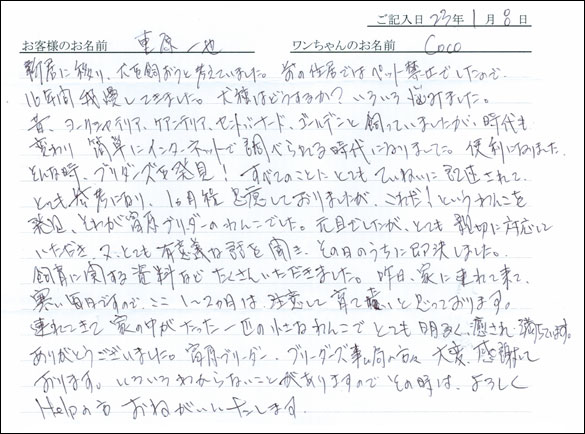 ご記入日 23年 1月 8日
お客様のお名前 重原 一也 ワンちゃんのお名前 Coco
新居に移り、犬を飼おうと考えていました。前の住居ではペット禁止でしたので
16年間我慢してきました。犬種はどうするか？いろいろ悩みました。
昔、ヨークシャテリア、ケアンテリア、セントバーナード、ゴールデンと飼っていましたが、時代も
変わり 簡単にインターネットで調べられる時代になりまして。便利になりました
そんな時、ブリーダーズを発見！すべてのことにとてもていねいに記述されて
とても参考になり、1ヶ月程思慮しておりましたが、これだ！というわんこを
発見、それが宮原ブリーダーのわんこでした。元旦でしたが、とても親切に対応して
いただき、又、とても有意義な話を聞き、その日のうちに即決しました。
飼育に関する資料などたくさんいただきました。昨日、家に連れて来て、
寒い毎日ですので、ここ1〜2ヶ月は、注意して育てたいと思っております。
連れてきて家の中がたった一匹の小さなわんこでとても明るく、癒され、満ちています。
ありがとうございました。宮原ブリーダー、ブリーダーズ事ム局の方々、大変、感謝して
おります。いろいろわからないことがありますのでその時は、よろしく
Helpの方おねがいいたします